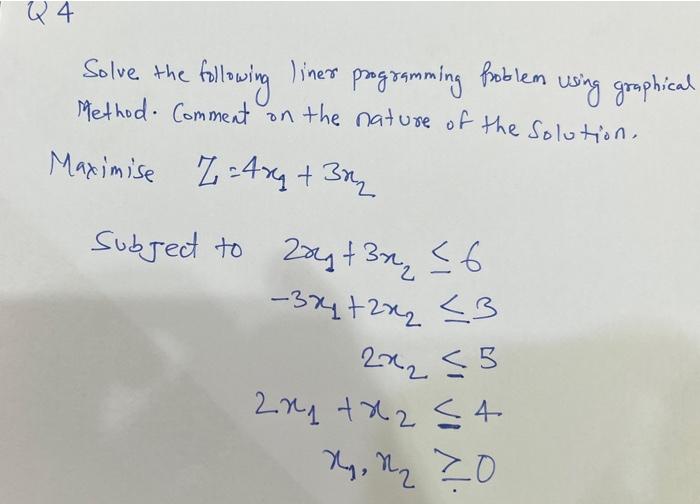 Q 4
Solve the following liner programming problem using graphical
Method. Comment on the nature of the Solution.
Maximise Z = 4x₁ + 3x₂
Subject to 2x₁ + 3x₂ ≤ 6
-3x₁ + 2x₂ ≤ 3
2x₂ ≤ 5
2x₁ + x₂ ≤ 4
x₁, x₂ ≥ 0